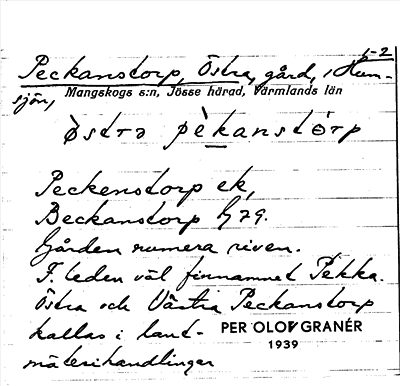 1-2
Peckanstorp, Östra, gård, i Hum-
sjön,
Mangskogs s:n, Jösse härad, Värmlands län
østrə pèkanstòrp
Peckenstorp ek,
Beckanstorp G 79.
Gården numera riven.
F. leden väl finnamnet Pekka.
Östra och Västra Peckanstorp
kallas i lant-
mäterihandlingar
PER OLOV GRANÉR
1939